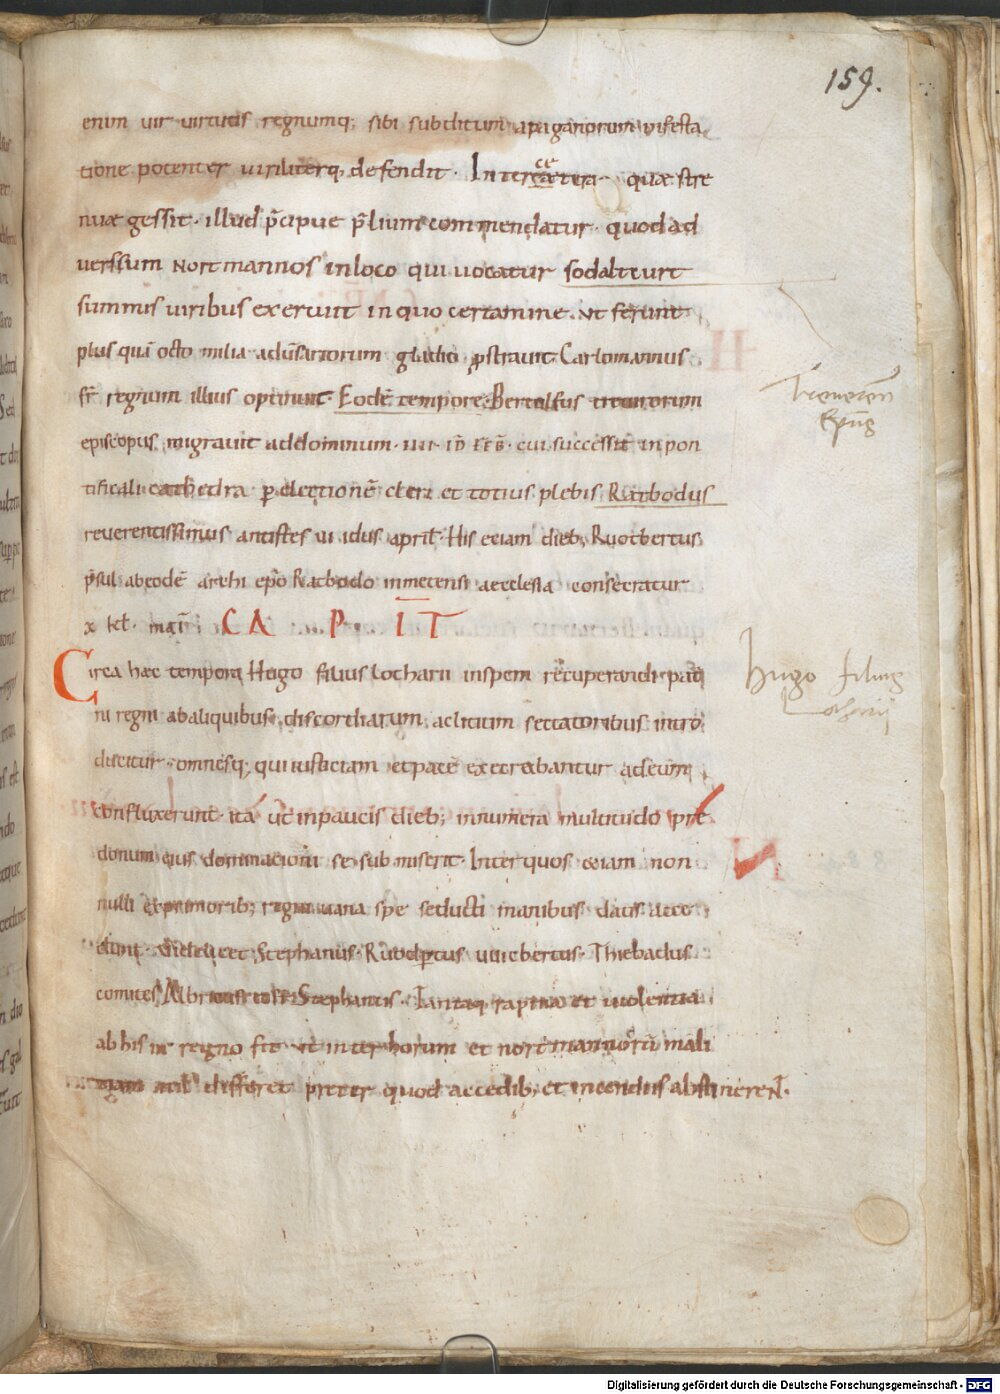 159.
enim vir virtutis regnumq; sibi subditum a paganorum infesta
tione potenter viriliterq; defendit. Inter cętera quae stre
nuae gessit. illud p̄cipue p̄lium commendatur. quod ad
verssum Nortmannos in loco qui vocatur sodalteurt
summis viribus exercuit in quo certamine. ut ferunt
plus quā octo milia adūsariorum gladio prostravit. Carlomannus
fr̄ regnum illius optinuit. Eodē tempore Bertolfus treuirorum
episcopus migravit ad dominum. IIII. ID FEB̄. cui successit in pon
tificali cathedra p electionē cleri et totius plebis Ratbodus
reverentissimus antistes VI idus april̄. His etiam dieb; Ruotbertus
p̄sul ab eodē archi ep̄o Ratbodo in metensi aecclesia consecratur
X kl̄. mai CAPIT
Treueren̄
Ep̄us
Circa haec tempora Hugo filius Lotharii in spem recuperandi pat
ni regni ab aliquibus discordiarum ac litium sectatoribus intro
Hugo filius
Lotharij
ducitur. omnesq; qui iusticiam et pacē execrabantur ad eum
confluxerunt. ita ut in paucis dieb; innumera multitudo p̄e
donum eius dominationi se submiserit. Inter quos etiam non
nulli ex primorib; regni vana spe seducti manibus datis acce
dunt. Stephanus. Ruodptus uuicbertus. Thiebadus
comites Stephanis. Tantaq; rapina et violentia
ab his in regno fit ut inter horum et nortmannorū mali
tiam nil differet preter quod a cedib; et incendiis abstinerent.